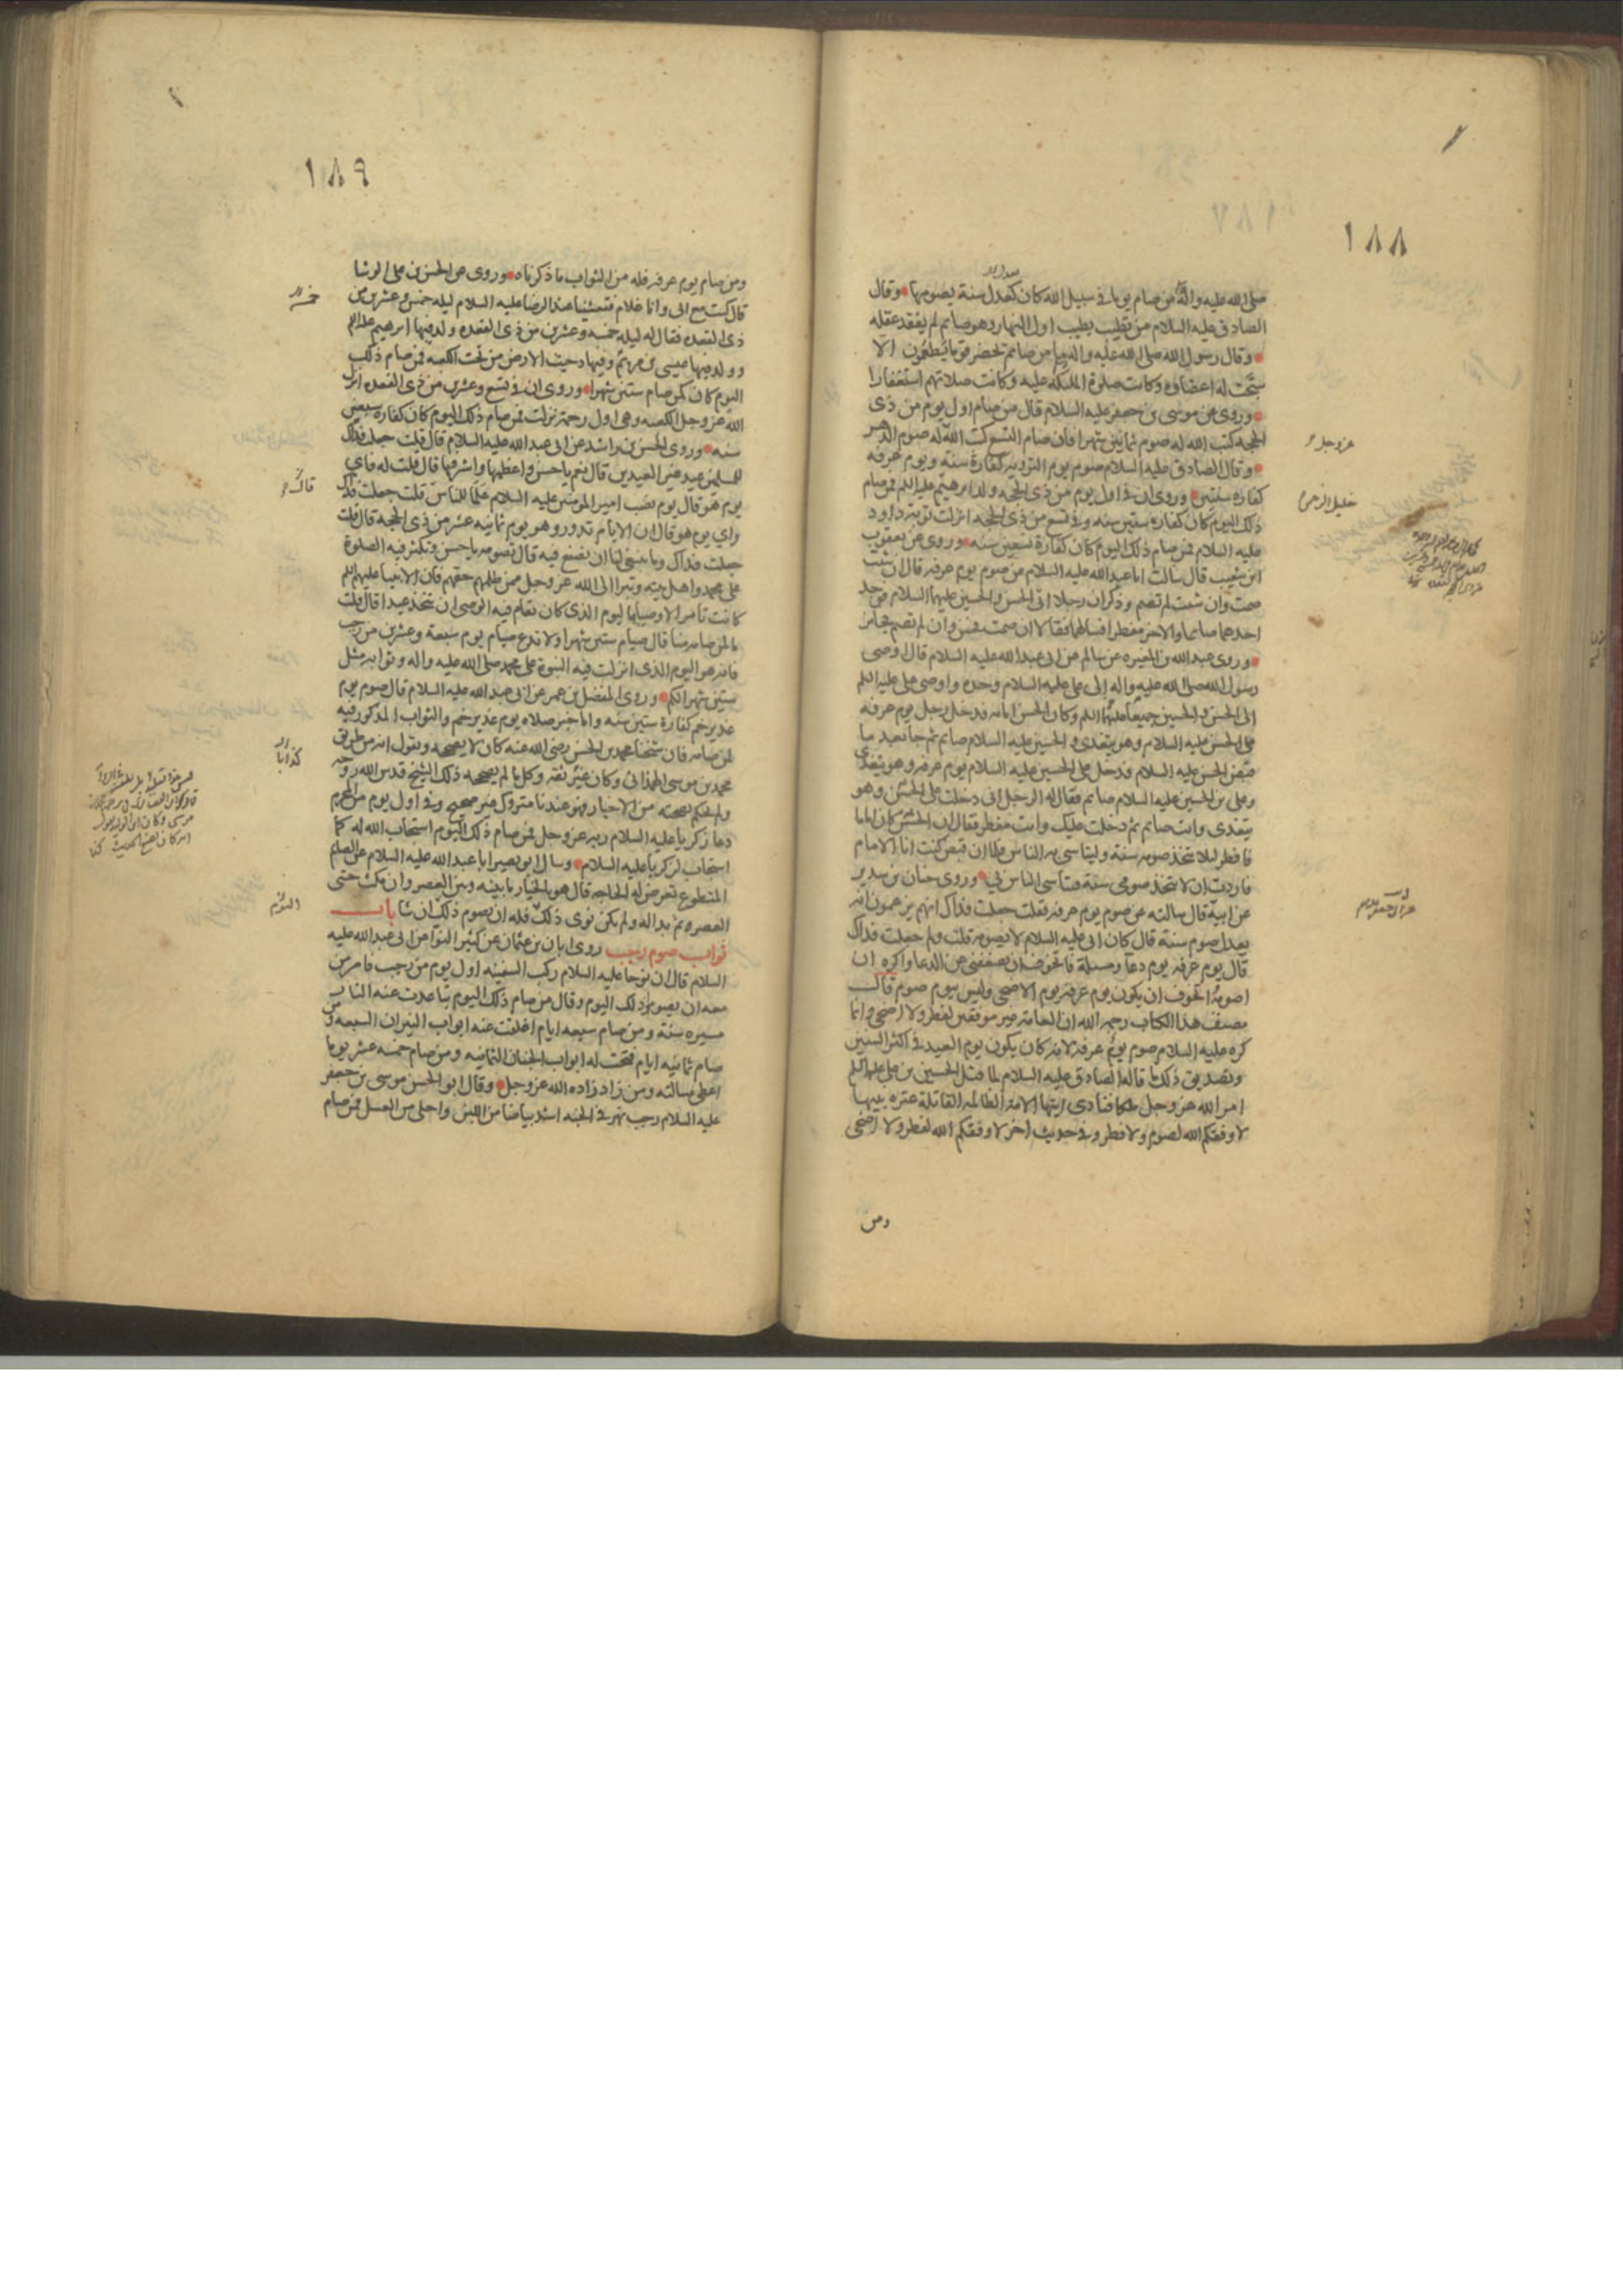 ١٨٨
صلى الله عليه واله من صام يوما فى سبيل الله كان كعدل سنة يصومها وقال
الصادق عليه السلام من تطيب بطيب اول النهار وهو صايم لم يفقد عقله
وقال رسول الله صلى الله عليه واله ما من صايم يحضر قوما يطعمون الا
سبحت له اعضاوه وكانت صلوة الملئكة عليه وكانت صلاتهم استغفارا
وروى عن موسى بن جعفر عليه السلام قال من صام اول يوم من ذى
الحجه كتب الله له صوم ثمانين شهرا فان صام التسع كتب الله له صوم الدهر
عز وجل
وقال الصادق عليه السلام صوم يوم الترويه كفارة سنة ويوم عرفه
كفاره سنتين وروى ان فى اول يوم من ذى الحجه ولد ابرهيم عليه السلم فمن صام
خليل الرحمن
ذلك اليوم كان كفاره ستين سنه وفى تسع من ذى الحجه انزلت توبة داود
عليه السلام فمن صام ذلك اليوم كان كفارة تسعين سنه وروى عن يعقوب
ابن شعيب قال سالت ابا عبد الله عليه السلام عن صوم يوم عرفه قال ان شئت
صمت وان شئت لم تصم وذكر ان رجلا اتى الحسن والحسين عليهما السلام فوجد
احدهما صايما والاخر مفطرا فسالهما فقالا ان صمت فحسن وان لم تصم فجايز
وروى عبد الله بن المغيره عن سالم عن ابى عبد الله عليه السلام قال اوصى
رسول الله صلى الله عليه واله الى على عليه السلام وحده واوصى على عليه السلم
الى الحسن والحسين جميعا عليهما السلم وكان الحسن امامه فدخل رجل يوم عرفه
على الحسن عليه السلام وهو يتغدى والحسين عليه السلام صايم ثم جا بعد ما
قبض الحسن عليه السلام فدخل على الحسين عليه السلام يوم عرفه وهو يتغدى
وعلى بن الحسين عليه السلام صايم فقال له الرجل انى دخلت على الحسن وهو
يتغدى وانت صايم ثم دخلت عليك وانت مفطر فقال ان الحسن كان اماما
فافطر لئلا يتخذ صومه سنة وليتاسى به الناس فلما ان قبض كنت انا الامام
فاردت ان لا يتخذ صومى سنة فيتاسى الناس بى وروى حنان بن سدير
عن ابيه قال سالته عن صوم يوم عرفه فقلت جعلت فداك انهم يزعمون انه
يعدل صوم سنة قال كان ابى عليه السلام لا يصومه قلت ولم جعلت فداك
قال يوم عرفه يوم دعآ ومسئلة فاتخوف ان يضعفنى عن الدعا واكره ان
اصومه اتخوف ان يكون يوم عرفه يوم الاضحى وليس بيوم صوم قال
مصنف هذا الكتاب رحمه الله ان العامه غير موفقين لفطر ولا اضحى وانما
كره عليه السلام صوم يوم عرفه لانه كان يكون يوم العيد فى اكثر السنين
وتصديق ذلك ما قاله الصادق عليه السلام لما قتل الحسين بن على عليهما السلم
امر الله عز وجل ملكا فنادى ايتها الامة الظالمه القاتلة عتره نبيها
لا وفقكم الله لصوم ولا فطر وفى حديث اخر لا وفقكم الله لفطر ولا اضحى
ومن
١٨٩
ومن صام يوم عرفه فله من الثواب ما ذكرناه وروى عن الحسن بن على الوشا
قال كنت مع ابى وانا غلام فتعشينا عند الرضا عليه السلام ليله خمس وعشرين من
ذى القعده فقال له ليله خمسه وعشرين من ذى القعده ولد فيها ابرهيم عليه السلم
وولد فيها عيسى بن مريم وفيها دحيت الارض من تحت الكعبه فمن صام ذلك
اليوم كان كمن صام ستين شهرا وروى ان فى تسع وعشرين من ذى القعده انزل
الله عز وجل الكعبه وهى اول رحمة نزلت فمن صام ذلك اليوم كان كفاره سبعين
سنه وروى الحسن بن راشد عن ابى عبد الله عليه السلام قال قلت جعلت فداك
للمسلمين عيد غير العيدين قال نعم يا حسن واعظمها واشرفها قال قلت له فاي
يوم هو قال يوم نصب امير المومنين عليه السلام علما للناس قلت جعلت فداك
واي يوم هو قال ان الايام تدور وهو يوم ثمانيه عشر من ذى الحجه قال قلت
جعلت فداك وما ينبغى لنا ان نصنع فيه قال تصومه يا حسن وتكثر فيه الصلوة
على محمد واهل بيته وتبرا الى الله عز وجل ممن ظلمهم حقهم فان الانبيا عليهم السلم
كانت تامر الاوصيا باليوم الذى كان يقام فيه الوصى ان يتخذ عيدا قال قلت
ما لمن صامه منا قال صيام ستين شهرا ولا تدع صيام يوم سبعة وعشرين من رجب
فانه هو اليوم الذى انزلت فيه النبوة على محمد صلى الله عليه واله وثوابه مثل
ستين شهرا لكم وروى المفضل بن عمر عن ابى عبد الله عليه السلام قال صوم يوم
غدير خم كفارة ستين سنه واما خبر صلاه يوم غدير خم والثواب المذكور فيه
لمن صامه فان شيخنا محمد بن الحسن رضى الله عنه كان لا يصححه ويقول انه من طريق
محمد بن موسى الهمدانى وكان غير ثقه وكل ما لم يصححه ذلك الشيخ قدس الله روحه
ولم يحكم بصحته من الاخبار فهو عندنا متروك غير صحيح وفى اول يوم من المحرم
دعا زكريا عليه السلام ربه عز وجل فمن صام ذلك اليوم استجاب الله له كما
استجاب لزكريا عليه السلام وسال ابو بصير ابا عبد الله عليه السلام عن الصايم
المتطوع تعرض له الحاجه قال هو بالخيار ما بينه وبين العصر وان مكث حتى
العصر ثم بدا له ولم يكن نوى ذلك فله ان يصوم ذلك ان شا باب
ثواب صوم رجب روى ابان بن عثمان عن كثير النوا عن ابى عبد الله عليه
السلام قال ان نوحا عليه السلام ركب السفينه اول يوم من رجب فامر من
معه ان يصوموا ذلك اليوم وقال من صام ذلك اليوم تباعدت عنه النار
مسيره سنة ومن صام سبعه ايام اغلقت عنه ابواب النيران السبعه ومن
صام ثمانيه ايام فتحت له ابواب الجنان الثمانيه ومن صام خمسه عشر يوما
اعطى مسالته ومن زاد زاده الله عز وجل وقال ابو الحسن موسى بن جعفر
عليه السلام رجب نهر فى الجنه اشد بياضا من اللبن واحلى من العسل فمن صام